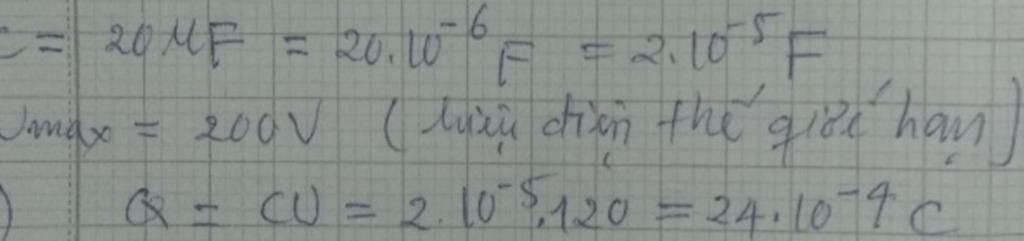 C = 20 MF = 20.10⁻⁶ F = 2.10⁻⁵ F
Umax = 200V (hiệu điện thế giới hạn)
) Q = CU = 2.10⁻⁵.120 = 24.10⁻⁴ C